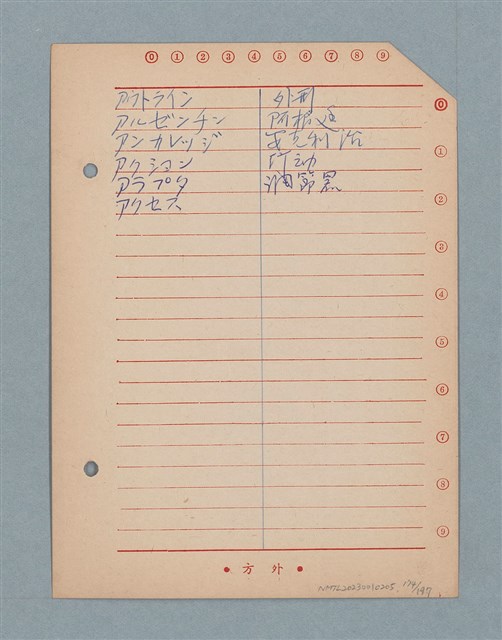 ⓪ ① ② ③ ④ ⑤ ⑥ ⑦ ⑧ ⑨
アウトライン 外形
アルゼンチン 阿根廷
アンカレッジ 安克利治
アクション 行动
アダプタ 調節器
アクセス
⓪
①
②
③
④
⑤
⑥
⑦
⑧
⑨
• 方 外 •
NMTL20230010205 174/197